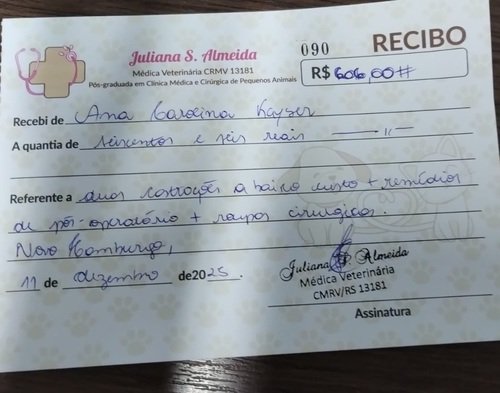 Juliana S. Almeida
Médica Veterinária CRMV 13181
Pós-graduada em Clínica Médica e Cirúrgica de Pequenos Animais
090
RECIBO
R$ 606,00#
Recebi de Ana Carolina Kayser
A quantia de seiscentos e seis reais
Referente a duas castrações a baixo custo + remédios
de pós-operatório + roupas cirúrgicas.
Novo Hamburgo,
11 de dezembro de 2025.
Juliana S. Almeida
Médica Veterinária
CMRV/RS 13181
Assinatura